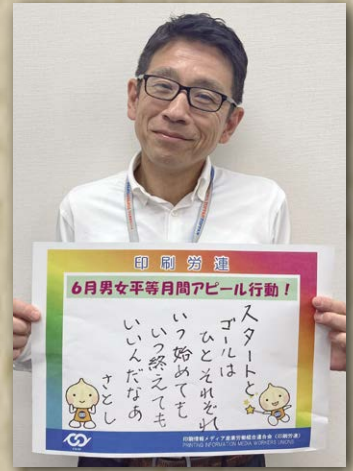 印刷労連
6月男女平等月間アピール行動！
スタートと
ゴールは
ひとそれぞれ
いつ始めても
いつ終えても
いいんだなあ
さとし
印刷情報メディア産業労働組合連合会（印刷労連）
PRINTING INFORMATION MEDIA WORKERS' UNIONS